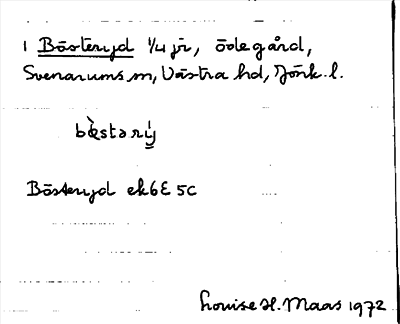 1 Bösteryd 1/4 jr, ödegård,
Svenarums sn, Västra hd, Jönk. l.
bèstərý
Bösteryd ek 6E 5c
Louise H. Maas 1972